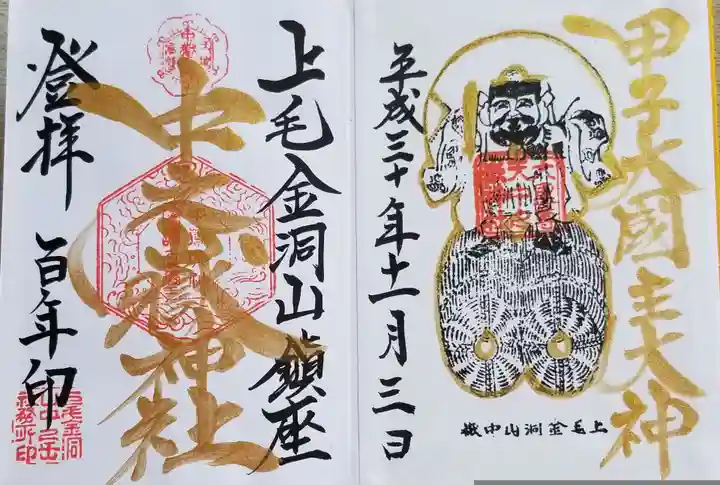 甲子大國主大神
平成三十年十一月三日
上毛金洞山中嶽
上毛金洞山鎮座
中之嶽神社
登拝
百年印